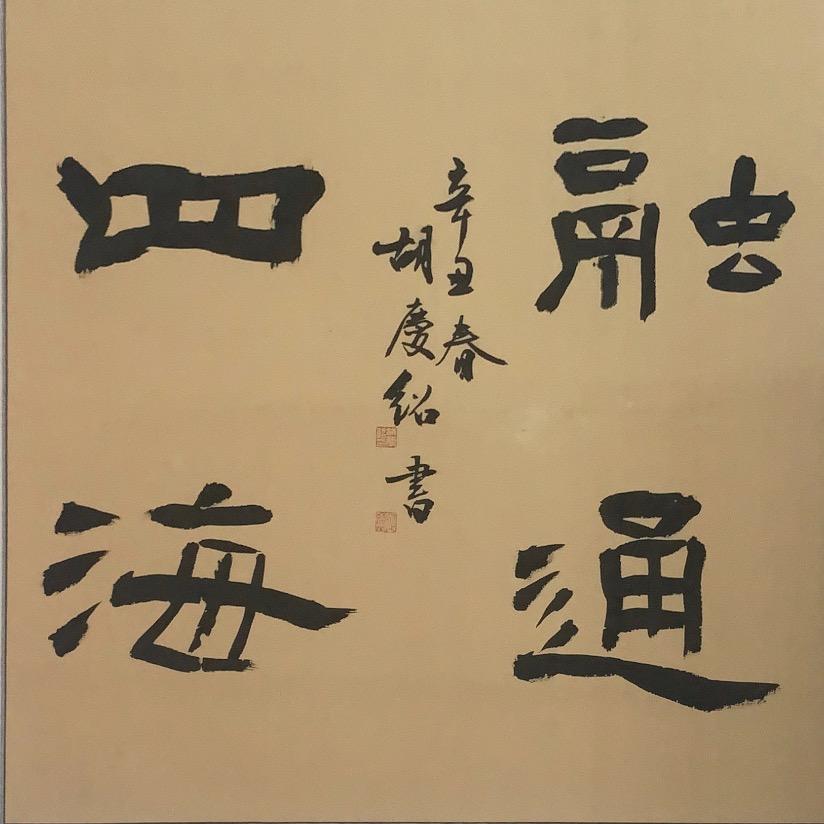 融通
四海
辛丑春
胡慶紹書